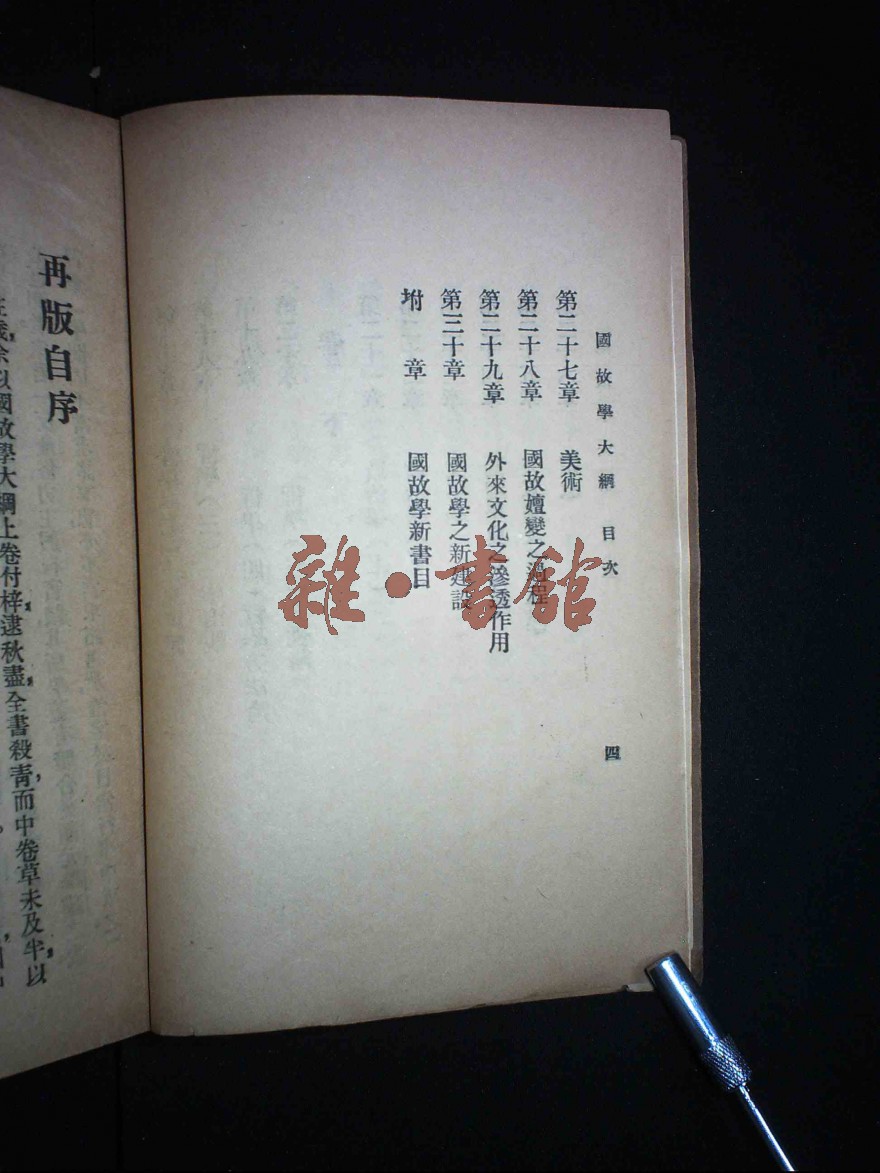 國故學大綱 目次
第二十七章 美術
第二十八章 國故嬗變之過程
第二十九章 外來文化之滲透作用
第三十章 國故學之新建設
坿章 國故學新書目
四
雜·書館
再版自序
余以國故學大綱上卷付梓，逮秋盡，全書殺青，而中卷草未及半，以